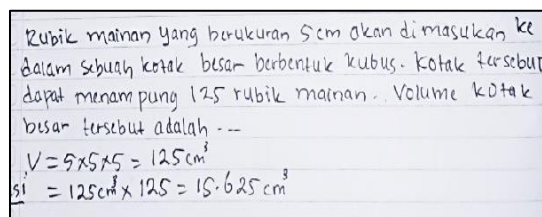 Rubik mainan yang berukuran 5 cm akan dimasukan ke
dalam sebuah kotak besar berbentuk kubus. Kotak tersebut
dapat menampung 125 rubik mainan. Volume kotak
besar tersebut adalah ---
V = 5x5x5 = 125 cm³
si = 125 cm³ x 125 = 15.625 cm³